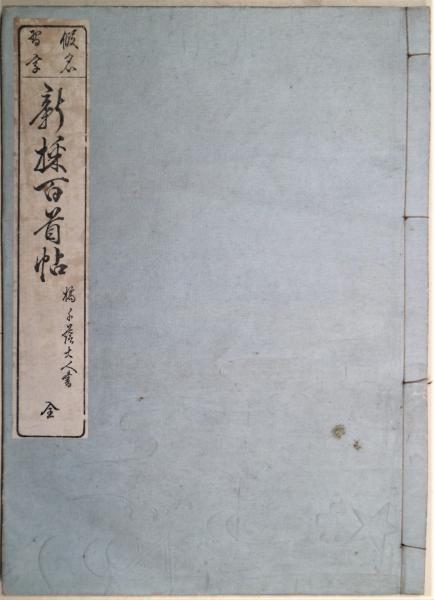 假名
習字
新採百首帖
橘千蔭大人書
全